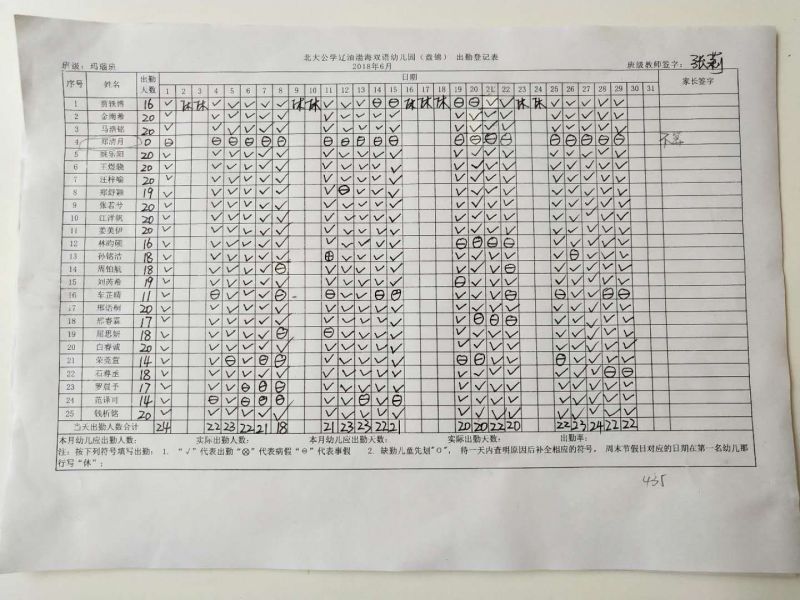 北大公学辽油渤海双语幼儿园（盘锦） 出勤登记表
班级：玛瑙班 2018年6月 班级教师签字：张莉
序号 姓名 出勤人数 日期 家长签字
1 2 3 4 5 6 7 8 9 10 11 12 13 14 15 16 17 18 19 20 21 22 23 24 25 26 27 28 29 30 31
1 16 √ 休 休 √ √ √ √ √ 休 休 √ √ √ ⊖ ⊖ 休 休 休 ⊖ ⊖ √ √ 休 休 √ √ √ √ √
2 金南希 20
3 马浩铭 20
4 郑清月 0 不算
5 20
6 王煜骁 20
7 汪梓喻 20
8 郑舒颖 19
9 张若兮 20
10 江洋帆 20
11 姜美伊 20
12 林昀硕 16
13 孙铭洁 18
14 周怕航 18
15 刘芮希 19
16 车芷晴 11
17 邢语桐 20
18 邢春霖 17
19 屈思妍 18
20 白春诚 20
21 荣尧萱 14
22 石尊丞 18
23 罗煜予 17
24 范译可 14
25 钱析铭 20
当天出勤人数合计 24 22 23 22 21 18 21 23 23 22 21 20 20 22 20 22 23 24 22 22
本月幼儿应出勤人数： 实际出勤人数： 本月幼儿应出勤天数： 实际出勤天数： 出勤率：
注：按下列符号填写出勤：1. "√"代表出勤"⊗"代表病假"⊖"代表事假 2. 缺勤儿童先划"O"，待一天内查明原因后补全相应的符号。周末节假日对应的日期在第一名幼儿那
行写"休"；
435